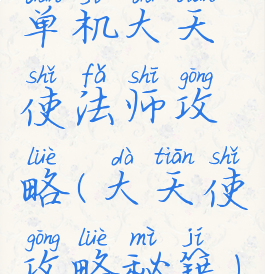 单机大天
shǐ fǎ shī gōng
使法师攻
lüè dà tiān shǐ
略(大天使
gōng lüè mì jí
攻略秘籍)